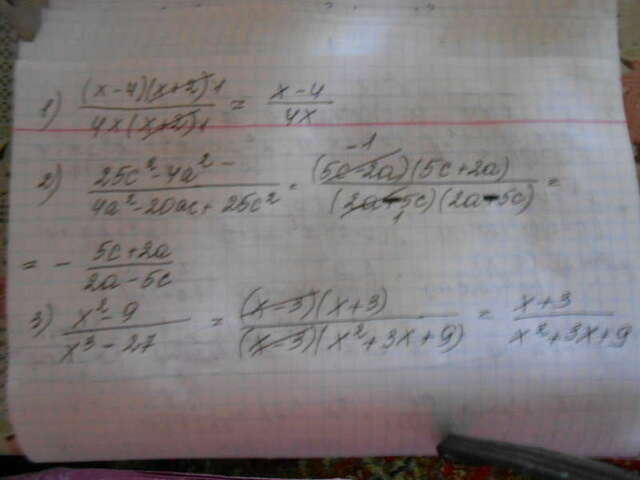 1) (x-4)(x+2) 1 / 4x(x+2) 1 = x-4 / 4x
2) 25c² - 4a² / 4a² - 20ac + 25c² = -1 (5c-2a)(5c+2a) / (2a-5c) 1 (2a-5c) =
= - 5c+2a / 2a-5c
3) x² - 9 / x³ - 27 = (x-3)(x+3) / (x-3)(x²+3x+9) = x+3 / x²+3x+9